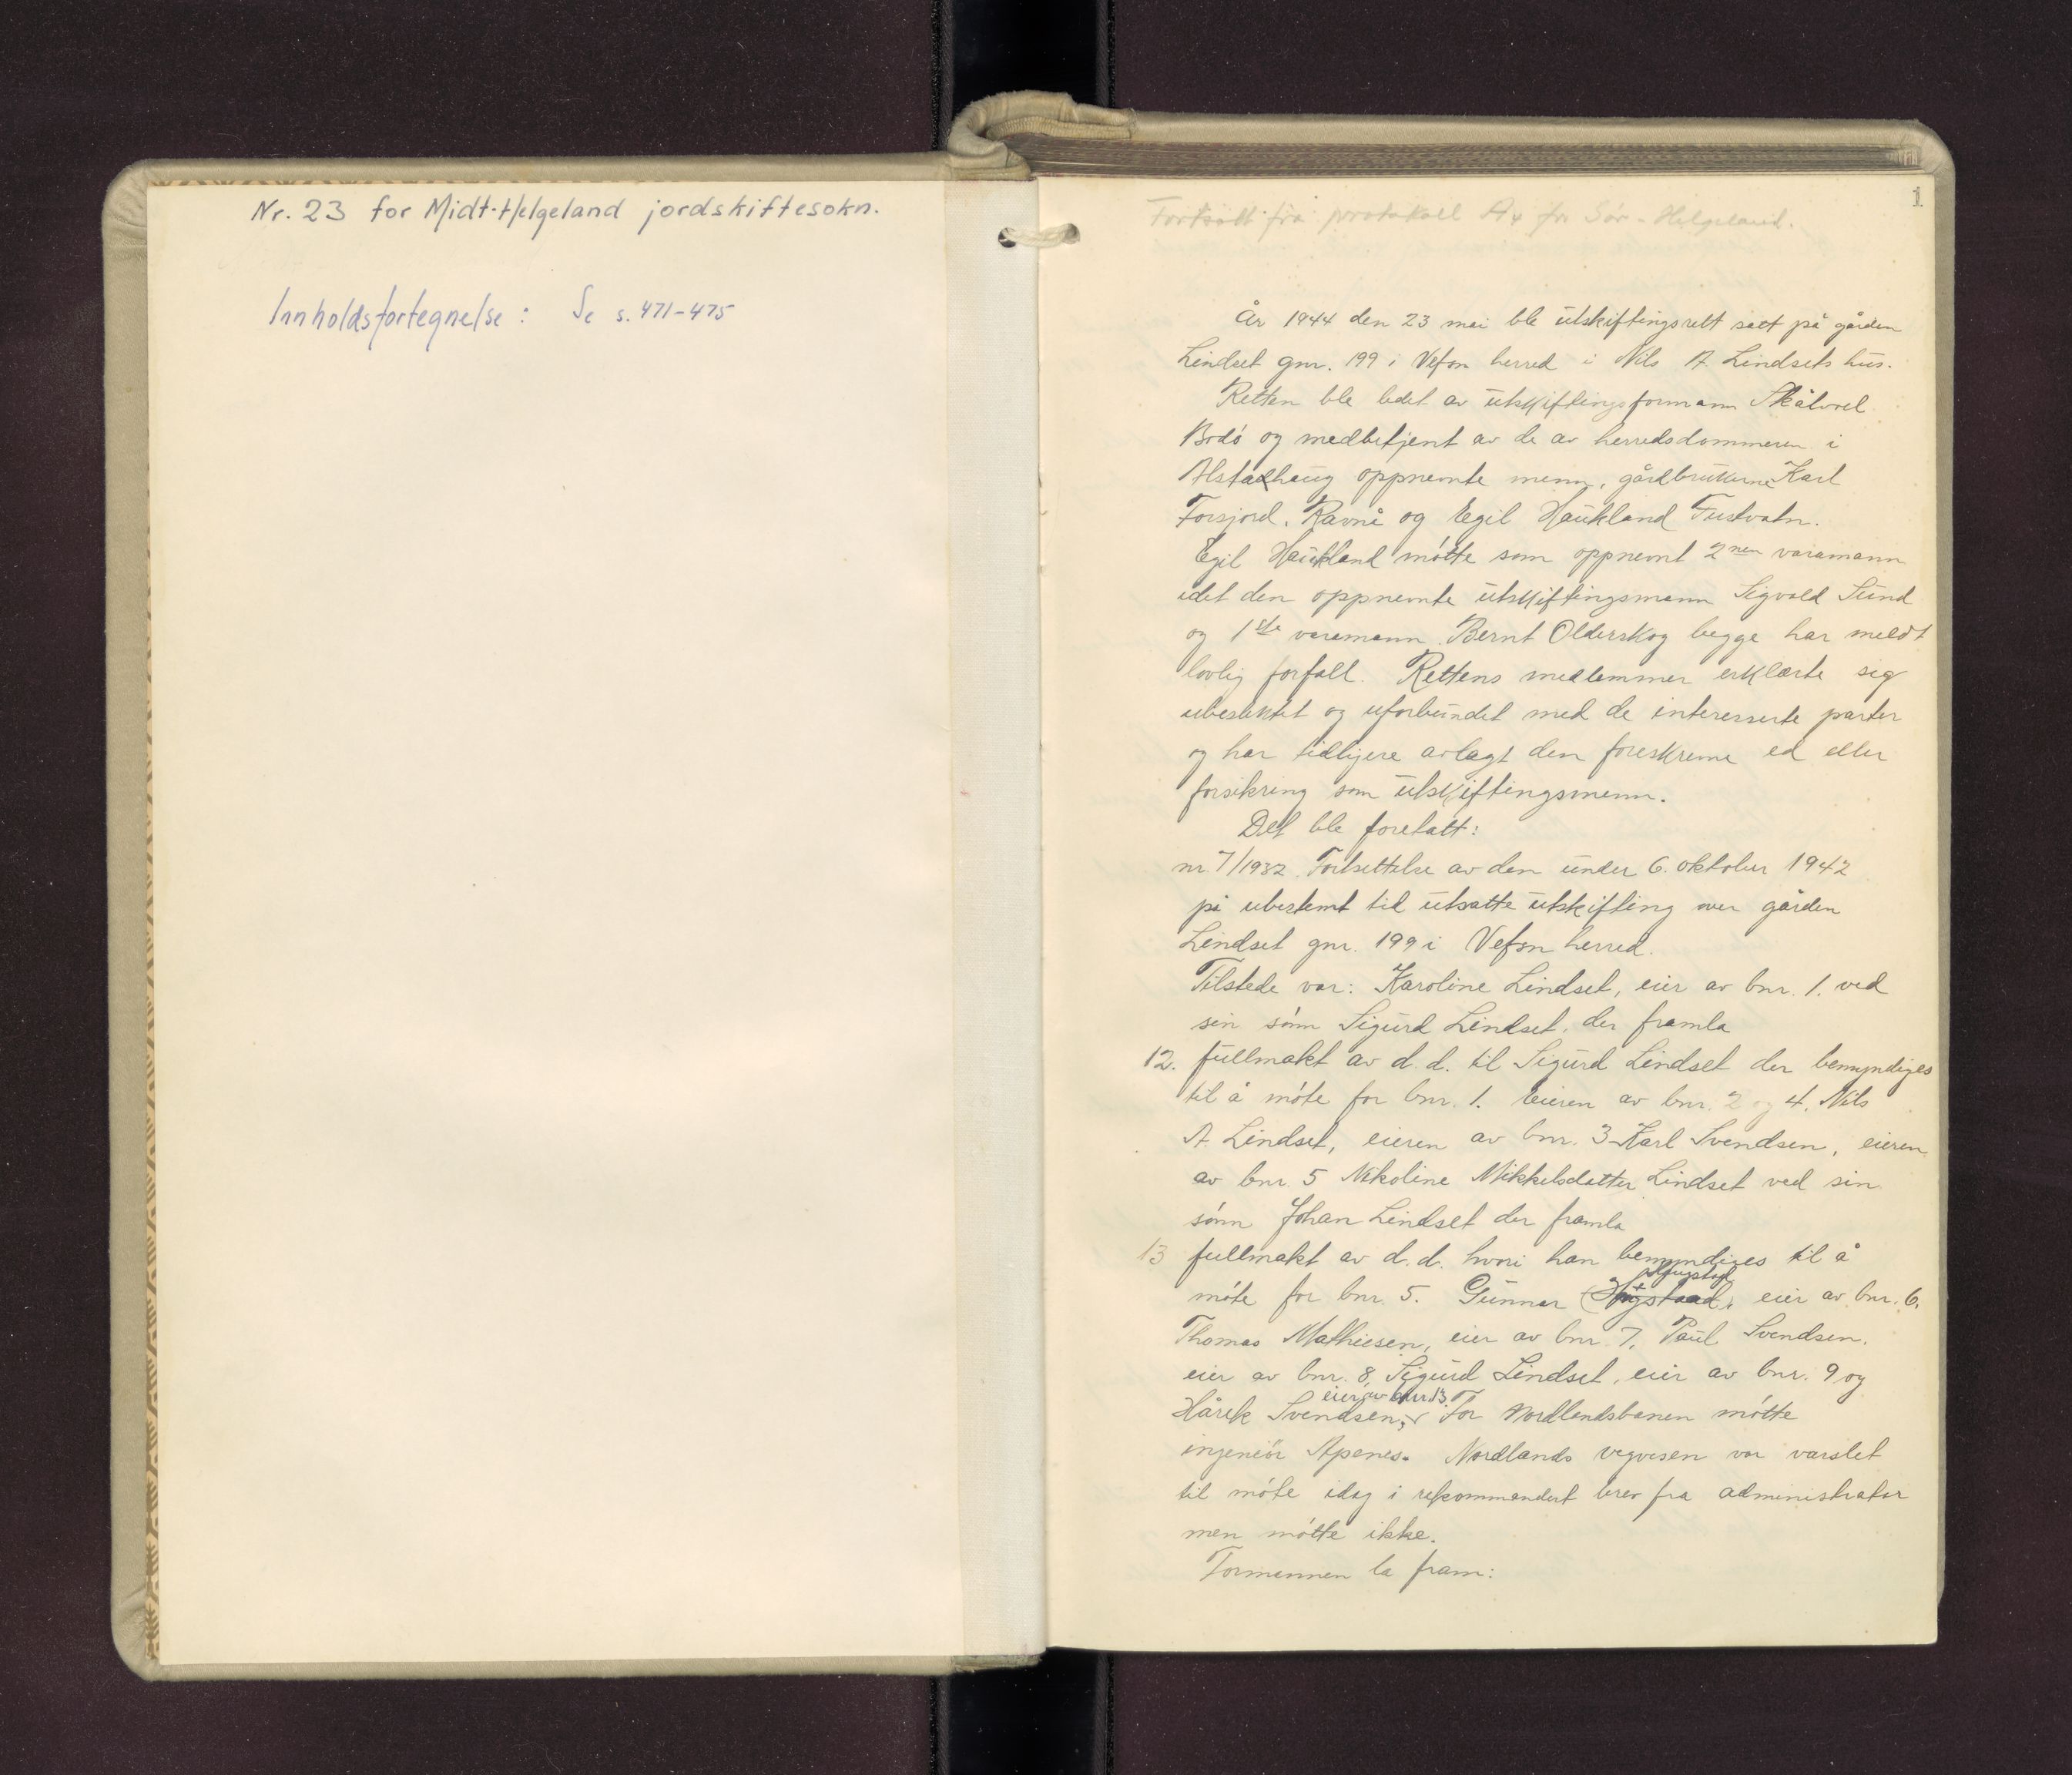 Nr. 23 for Midt-Helgeland jordskiftesokn.
Innholdsfortegnelse: Se s. 471-475
1
Fortsatt fra protokoll A4 for Sør-Helgeland.
År 1944 den 23 mai ble utskiftingsrett satt på gården
Lindset gnr. 199 i Vefsn herred i Nils A. Lindsets hus.
Retten ble ledet av utskiftingsformann Skålvoll
Bodø og medbetjent av de av herredsdommeren i
Alstahaug oppnevnte menn, gårdbrukerne Karl
Forsjord, Ravnå og Egil Haukland Fustvatn.
Egil Haukland møtte som oppnevnt 2nen varamann
idet den oppnevnte utskiftingsmann Sigvald Sund
og 1ste varamann Bernt Olderskog begge har meldt
lovlig forfall. Rettens medlemmer erklærte sig
ubeslektet og uforbundet med de interesserte parter
og har tidligere avlagt den foreskrevne ed eller
forsikring som utskiftingsmenn.
Det ble foretatt:
nr. 7/1932. Fortsettelse av den under 6. oktober 1942
på ubestemt tid utsatte utskifting over gården
Lindset gnr. 199 i Vefsn herred.
Tilstede var: Karoline Lindset, eier av bnr. 1. ved
sin sønn Sigurd Lindset, der framla
12. fullmakt av d.d. til Sigurd Lindset der bemyndiges
til å møte for bnr. 1. Eieren av bnr. 2 og 4, Nils
A. Lindset, eieren av bnr. 3 Karl Svendsen, eieren
av bnr. 5 Nikoline Mikkelsdatter Lindset ved sin
sønn Johan Lindset der framla
13 fullmakt av d.d. hvori han bemyndiges til å
møte for bnr. 5. Gunnar eier av bnr. 6.
Thomas Mathiesen, eier av bnr. 7, Paul Svendsen.
eier av bnr. 8, Sigurd Lindset, eier av bnr. 9 og
eier av bnr. 13
Hårek Svendsen, For Nordlandsbanen møtte
ingeniør Apenes. Nordlands vegvesen var varslet
til møte idag i rekommandert brev fra administrator
men møtte ikke.
Formannen la fram: